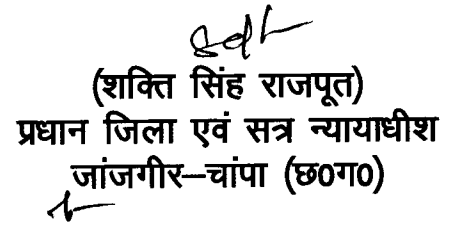 Sd/-
(शक्ति सिंह राजपूत)
प्रधान जिला एवं सत्र न्यायाधीश
जांजगीर–चांपा (छ0ग0)